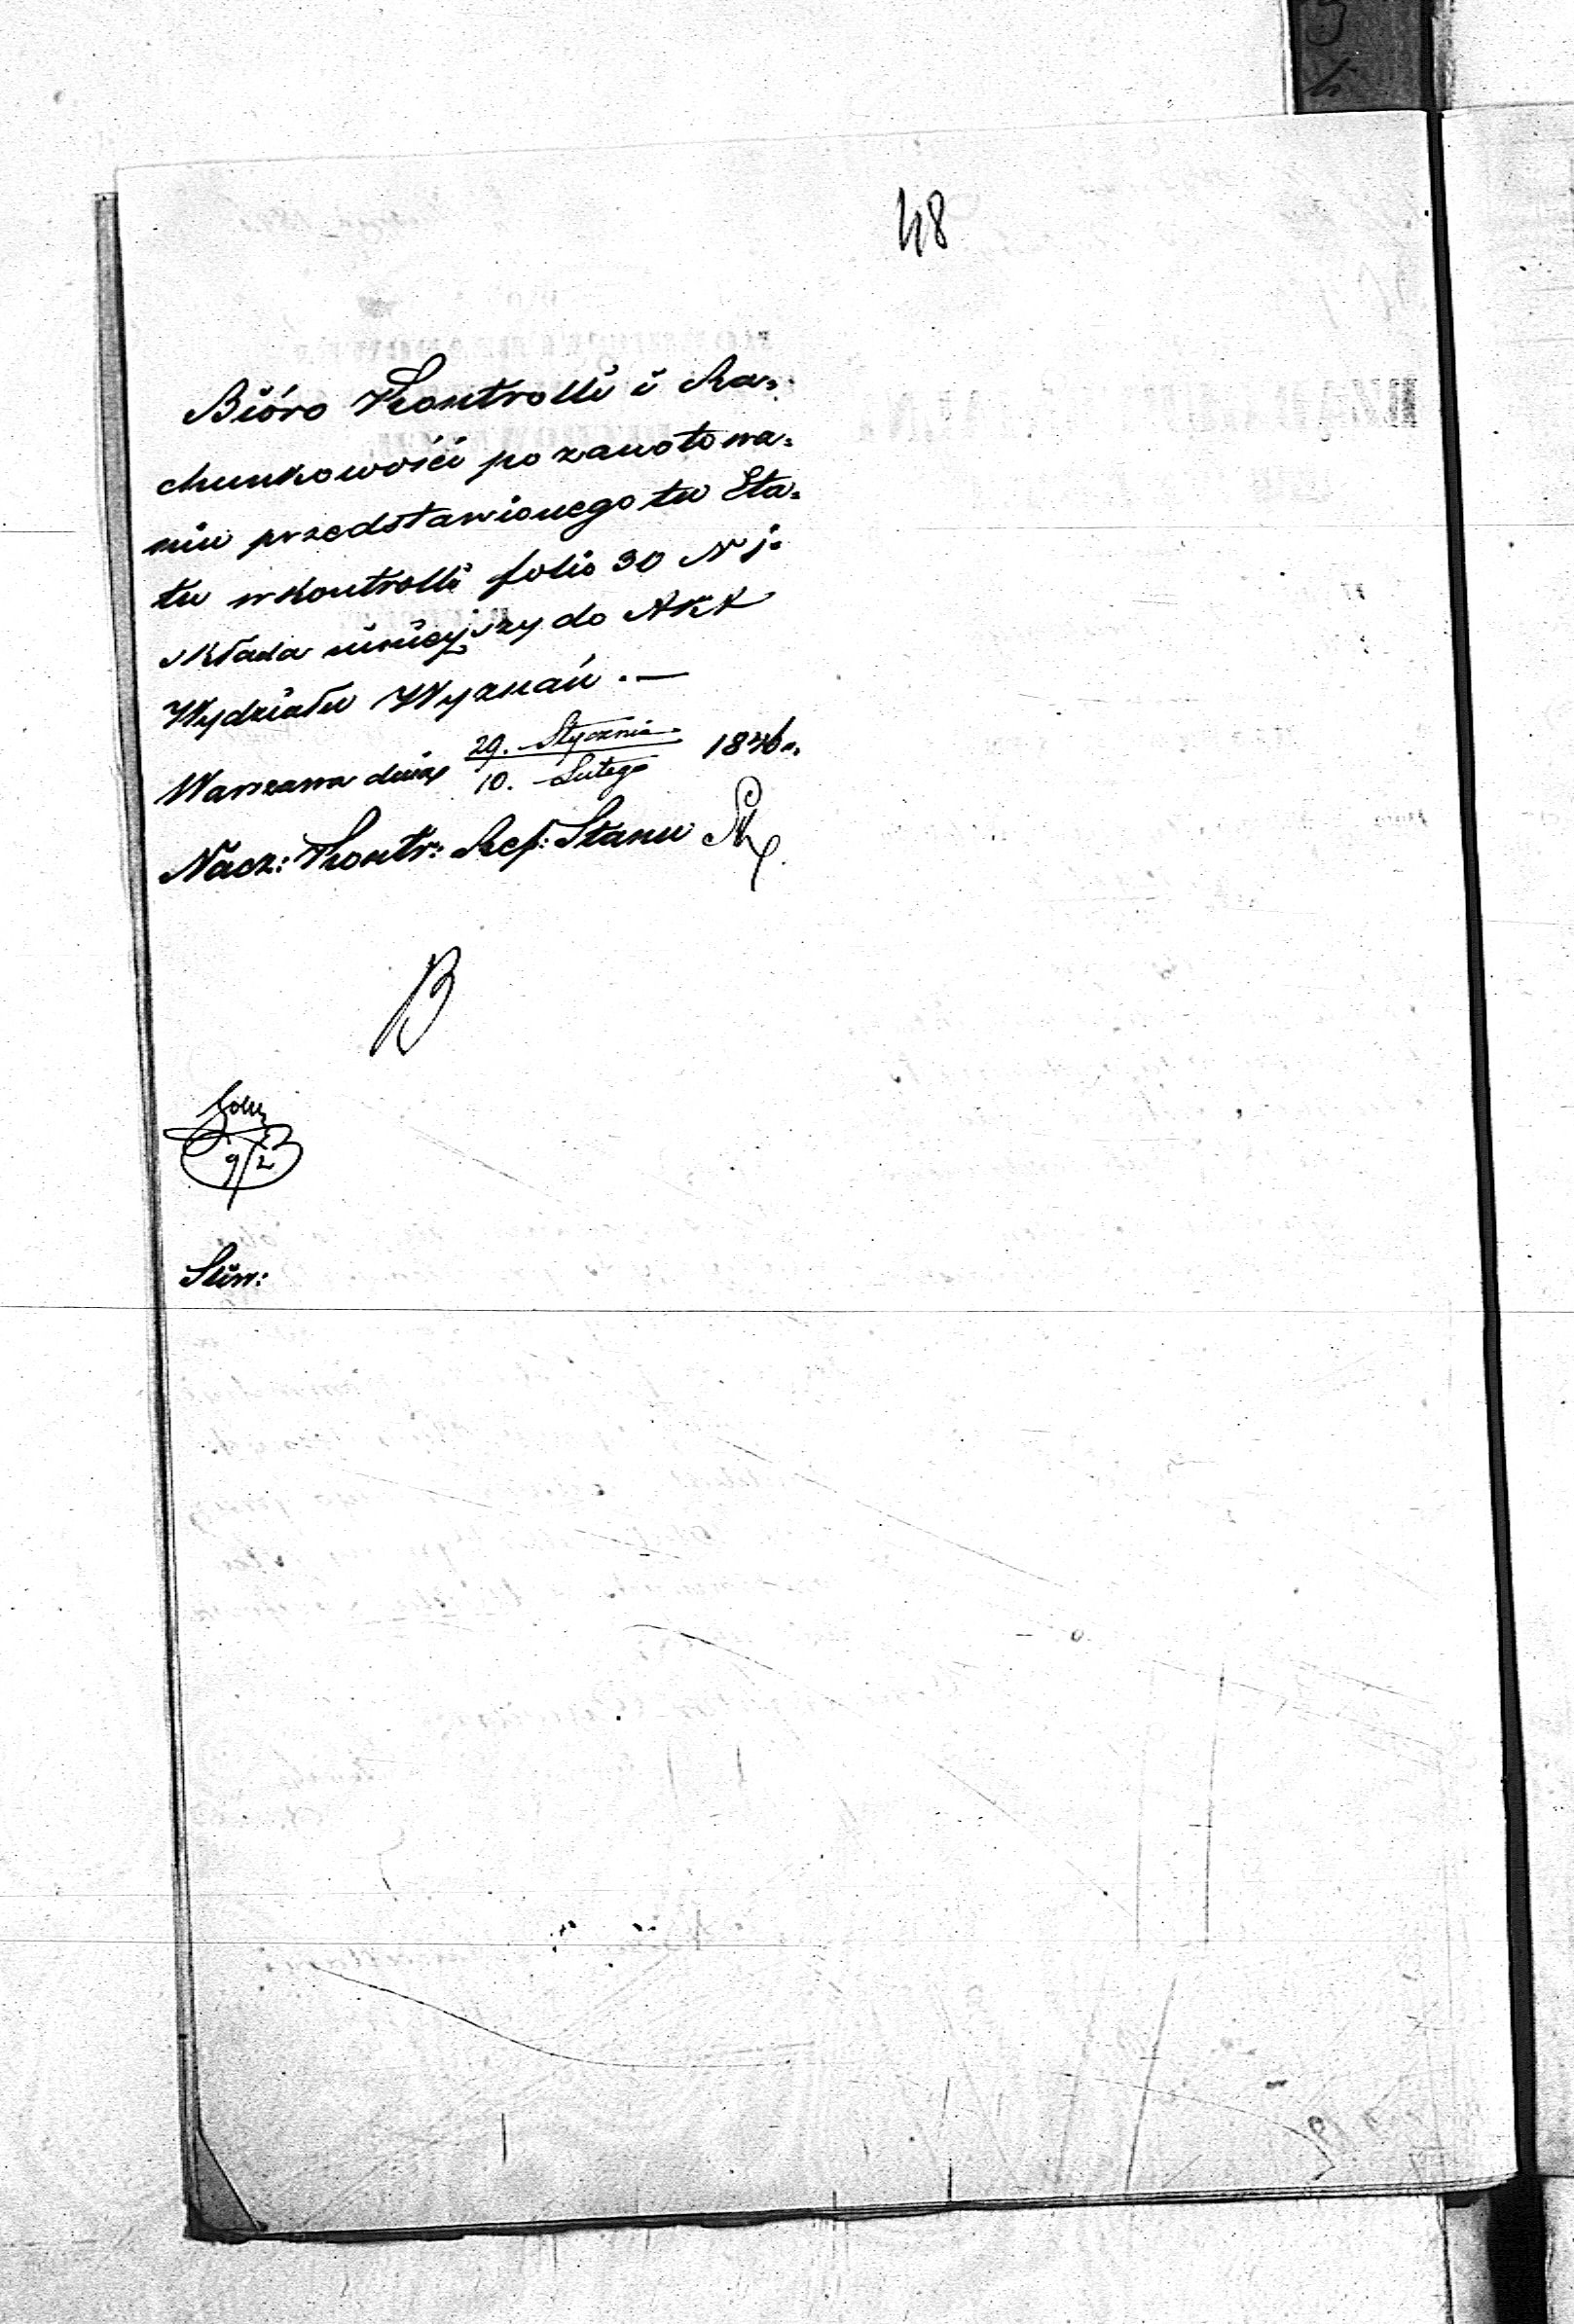 48
Bióro Kontrolli i Ra=
chunkowości po zanotowa=
niu przedstawionego tu Eta=
tu w kontrolli folio 30 N 1.
składa niniejszy do Akt
Wydziału Wyznań. —
Warszawa dnia 29. Stycznia 1846 r.
10. Lutego
Nacz: Kontr: Ref: Stanu
B
9/2
Śliw: